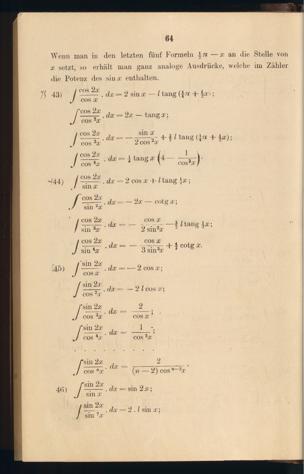 64
Wenn man in den letzten fünf Formeln ½π − x an die Stelle von
x setzt, so erhält man ganz analoge Ausdrücke, welche im Zähler
die Potenz des sin x enthalten.
43) ∫ cos 2x / cos x . dx = 2 sin x − l tang (¼π + ½x);
∫ cos 2x / cos ²x . dx = 2x − tang x;
∫ cos 2x / cos ³x . dx = − sin x / 2 cos ²x + 3/2 l tang (¼π + ½x);
∫ cos 2x / cos ⁴x . dx = ⅓ tang x (4 − 1 / cos²x).
44) ∫ cos 2x / sin x . dx = 2 cos x + l tang ½x;
∫ cos 2x / sin ²x . dx = − 2x − cotg x;
∫ cos 2x / sin ³x . dx = − cos x / 2 sin²x − 3/2 l tang ½x;
∫ cos 2x / sin ⁴x . dx = − cos x / 3 sin³x + 4/3 cotg x.
45) ∫ sin 2x / cos x . dx = − 2 cos x;
∫ sin 2x / cos ²x . dx = − 2 l cos x;
∫ sin 2x / cos ³x . dx = 2 / cos x;
∫ sin 2x / cos ⁴x . dx = 1 / cos ²x;
. . . . . . . .
∫ sin 2x / cos ⁿx . dx = 2 / (n − 2) cos ⁿ⁻²x.
46) ∫ sin 2x / sin x . dx = sin 2x;
∫ sin 2x / sin ²x . dx = 2 . l sin x;